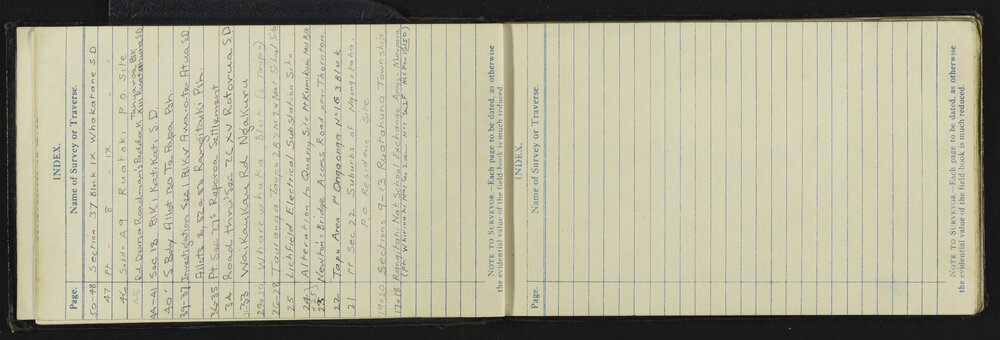 INDEX.
Page. Name of Survey or Traverse.
50-48 Section 37 Block IX Whakatane S.D
47 Pt " 8 " IX " "
46 Subdn A9 Ruatoki P.O. Site
45
44-41 Sec 18 Blk I Katikati S.D.
40 S Bdy Allot 130 Te Papa Psh
39-37 Investigation Sec 1 Blk V Awa-o-te-Atua S.D
Allots 3, 52 & 53 Rangitaiki Psh.
36-35 Pt Sec 27S Reporoa Settlement
34 Road thru' Sec 7C XV Rotorua S.D
33 Waikaukau Rd Ngakuru
29-30 Wharewhaka Block (L. Taupo)
26-28 Tauranga Taupo 2B2M2 & No1 School Site
25 Lichfield Electrical Substation Site
24 Alteration to Quarry Site Pt Kumikumi No1 Blk
23 Newton's Bridge Access Road near Thornton
22 Tapu Area Pt Ongaonga No 1B3 Block
21 Pt Sec 22 Suburbs of Ngongotaha.
P.O Residence Site
19-20 Sections 9-13 Ruatahuna Township
17-18 Rangitahi Nat School Exchange Area - Murupara
NOTE TO SURVEYOR—Each page to be dated, as otherwise
the evidential value of the field-book is much reduced
INDEX.
Page. Name of Survey or Traverse.
NOTE TO SURVEYOR—Each page to be dated, as otherwise
the evidential value of the field-book is much reduced.